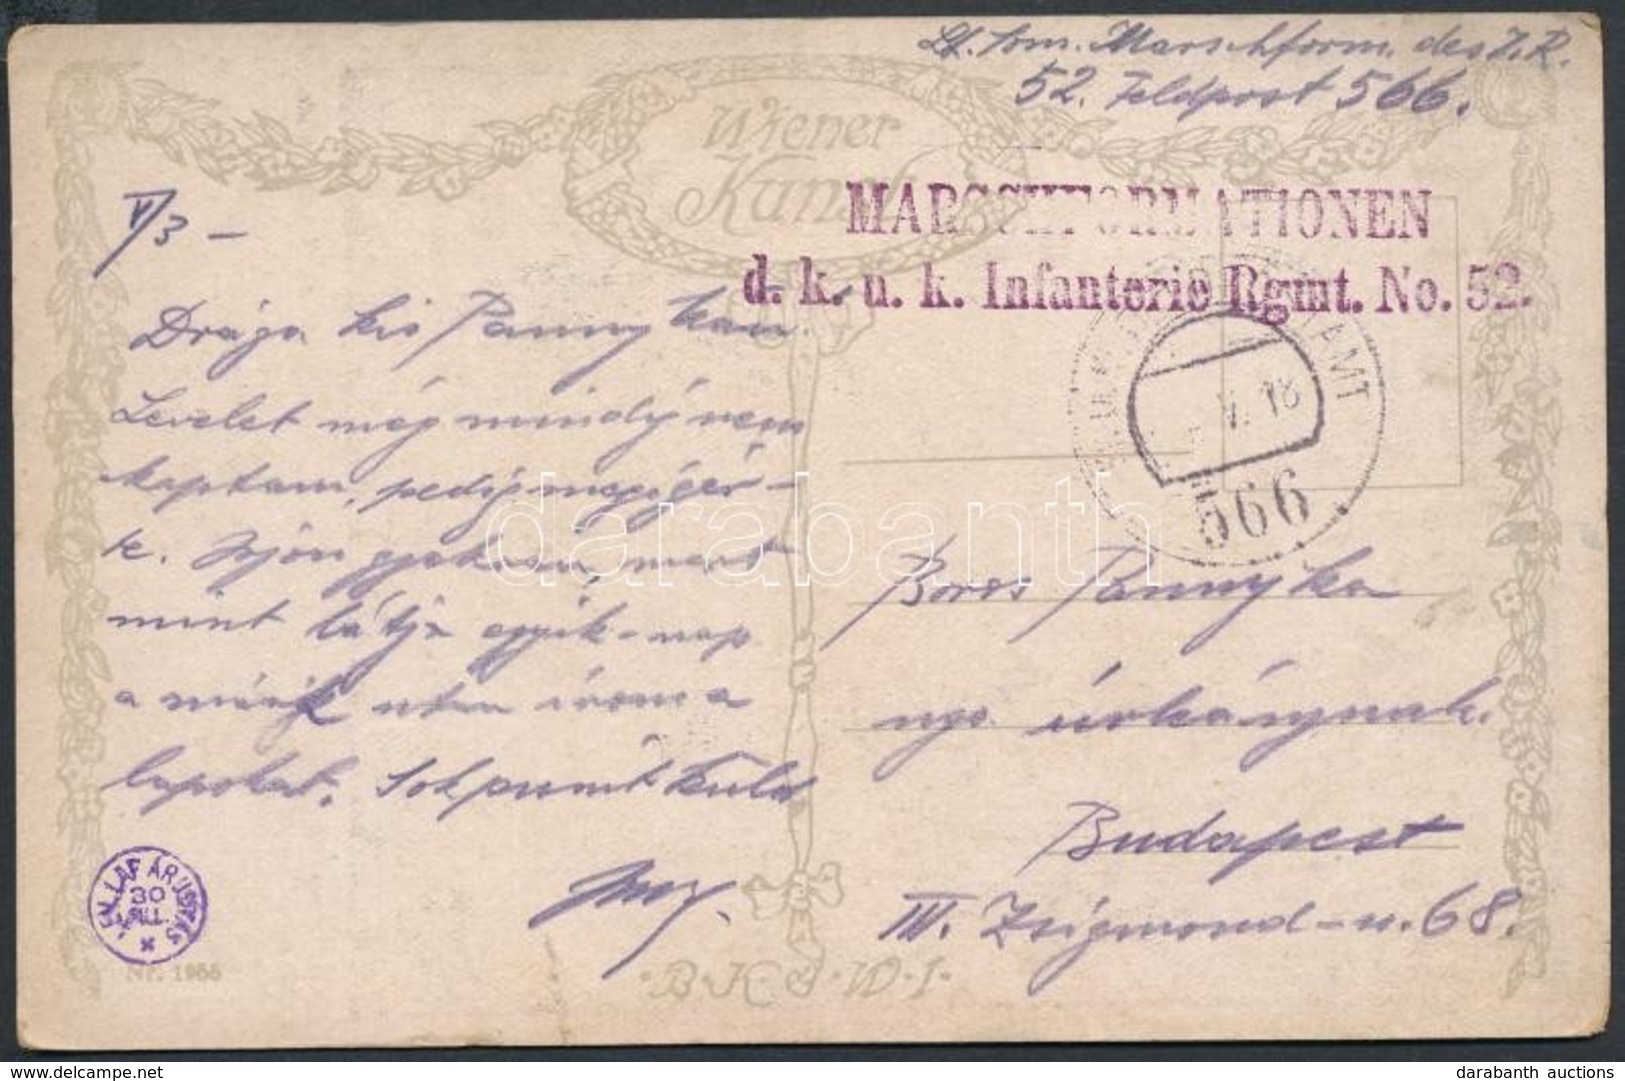 Lt. Som. Marschform. des I. R.
52. Feldpost 566.
Wiener
Kunst
MARSCHFORMATIONEN
d. k. u. k. Infanterie Rgmt. No. 52.
V/3 –
Drága kis Pannykám.
Levelet még mindig nem
kaptam, pedig megigér-
te. Irjon gyakran, mert
mint látja egyik-nap
a másik után irom a
lapokat. Sok puszit küld
V. 18
566
Boros Pannyka
ngs úrleánynak.
Budapest
III. Zsigmond-u. 68.
LEV. LAP ÁRUSÍTÁS
30
FILL.
Nr. 1955
B.K.W.I.
darabanth
© darabanth auctions